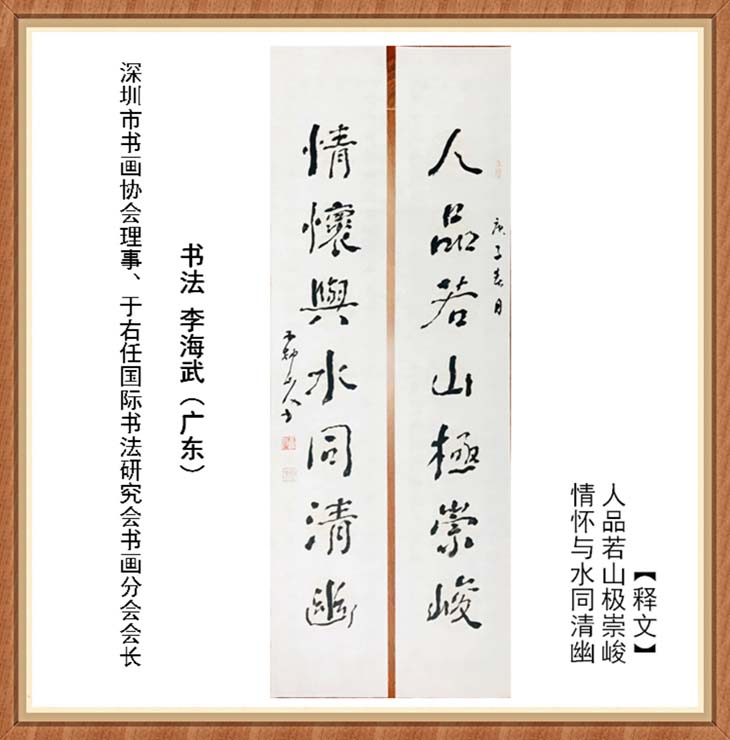 人品若山極崇峻
庚子春月
情懷與水同清幽
【释文】
人品若山极崇峻
情怀与水同清幽
书法 李海武（广东）
深圳市书画协会理事、于右任国际书法研究会书画分会会长